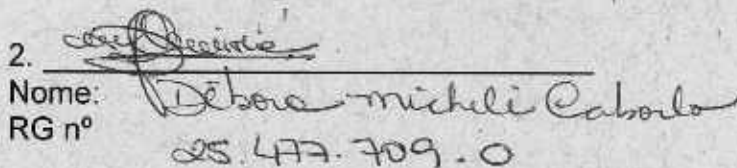 2.
Nome: Débora Micheli Caborlo
RG nº 25.477.709.0